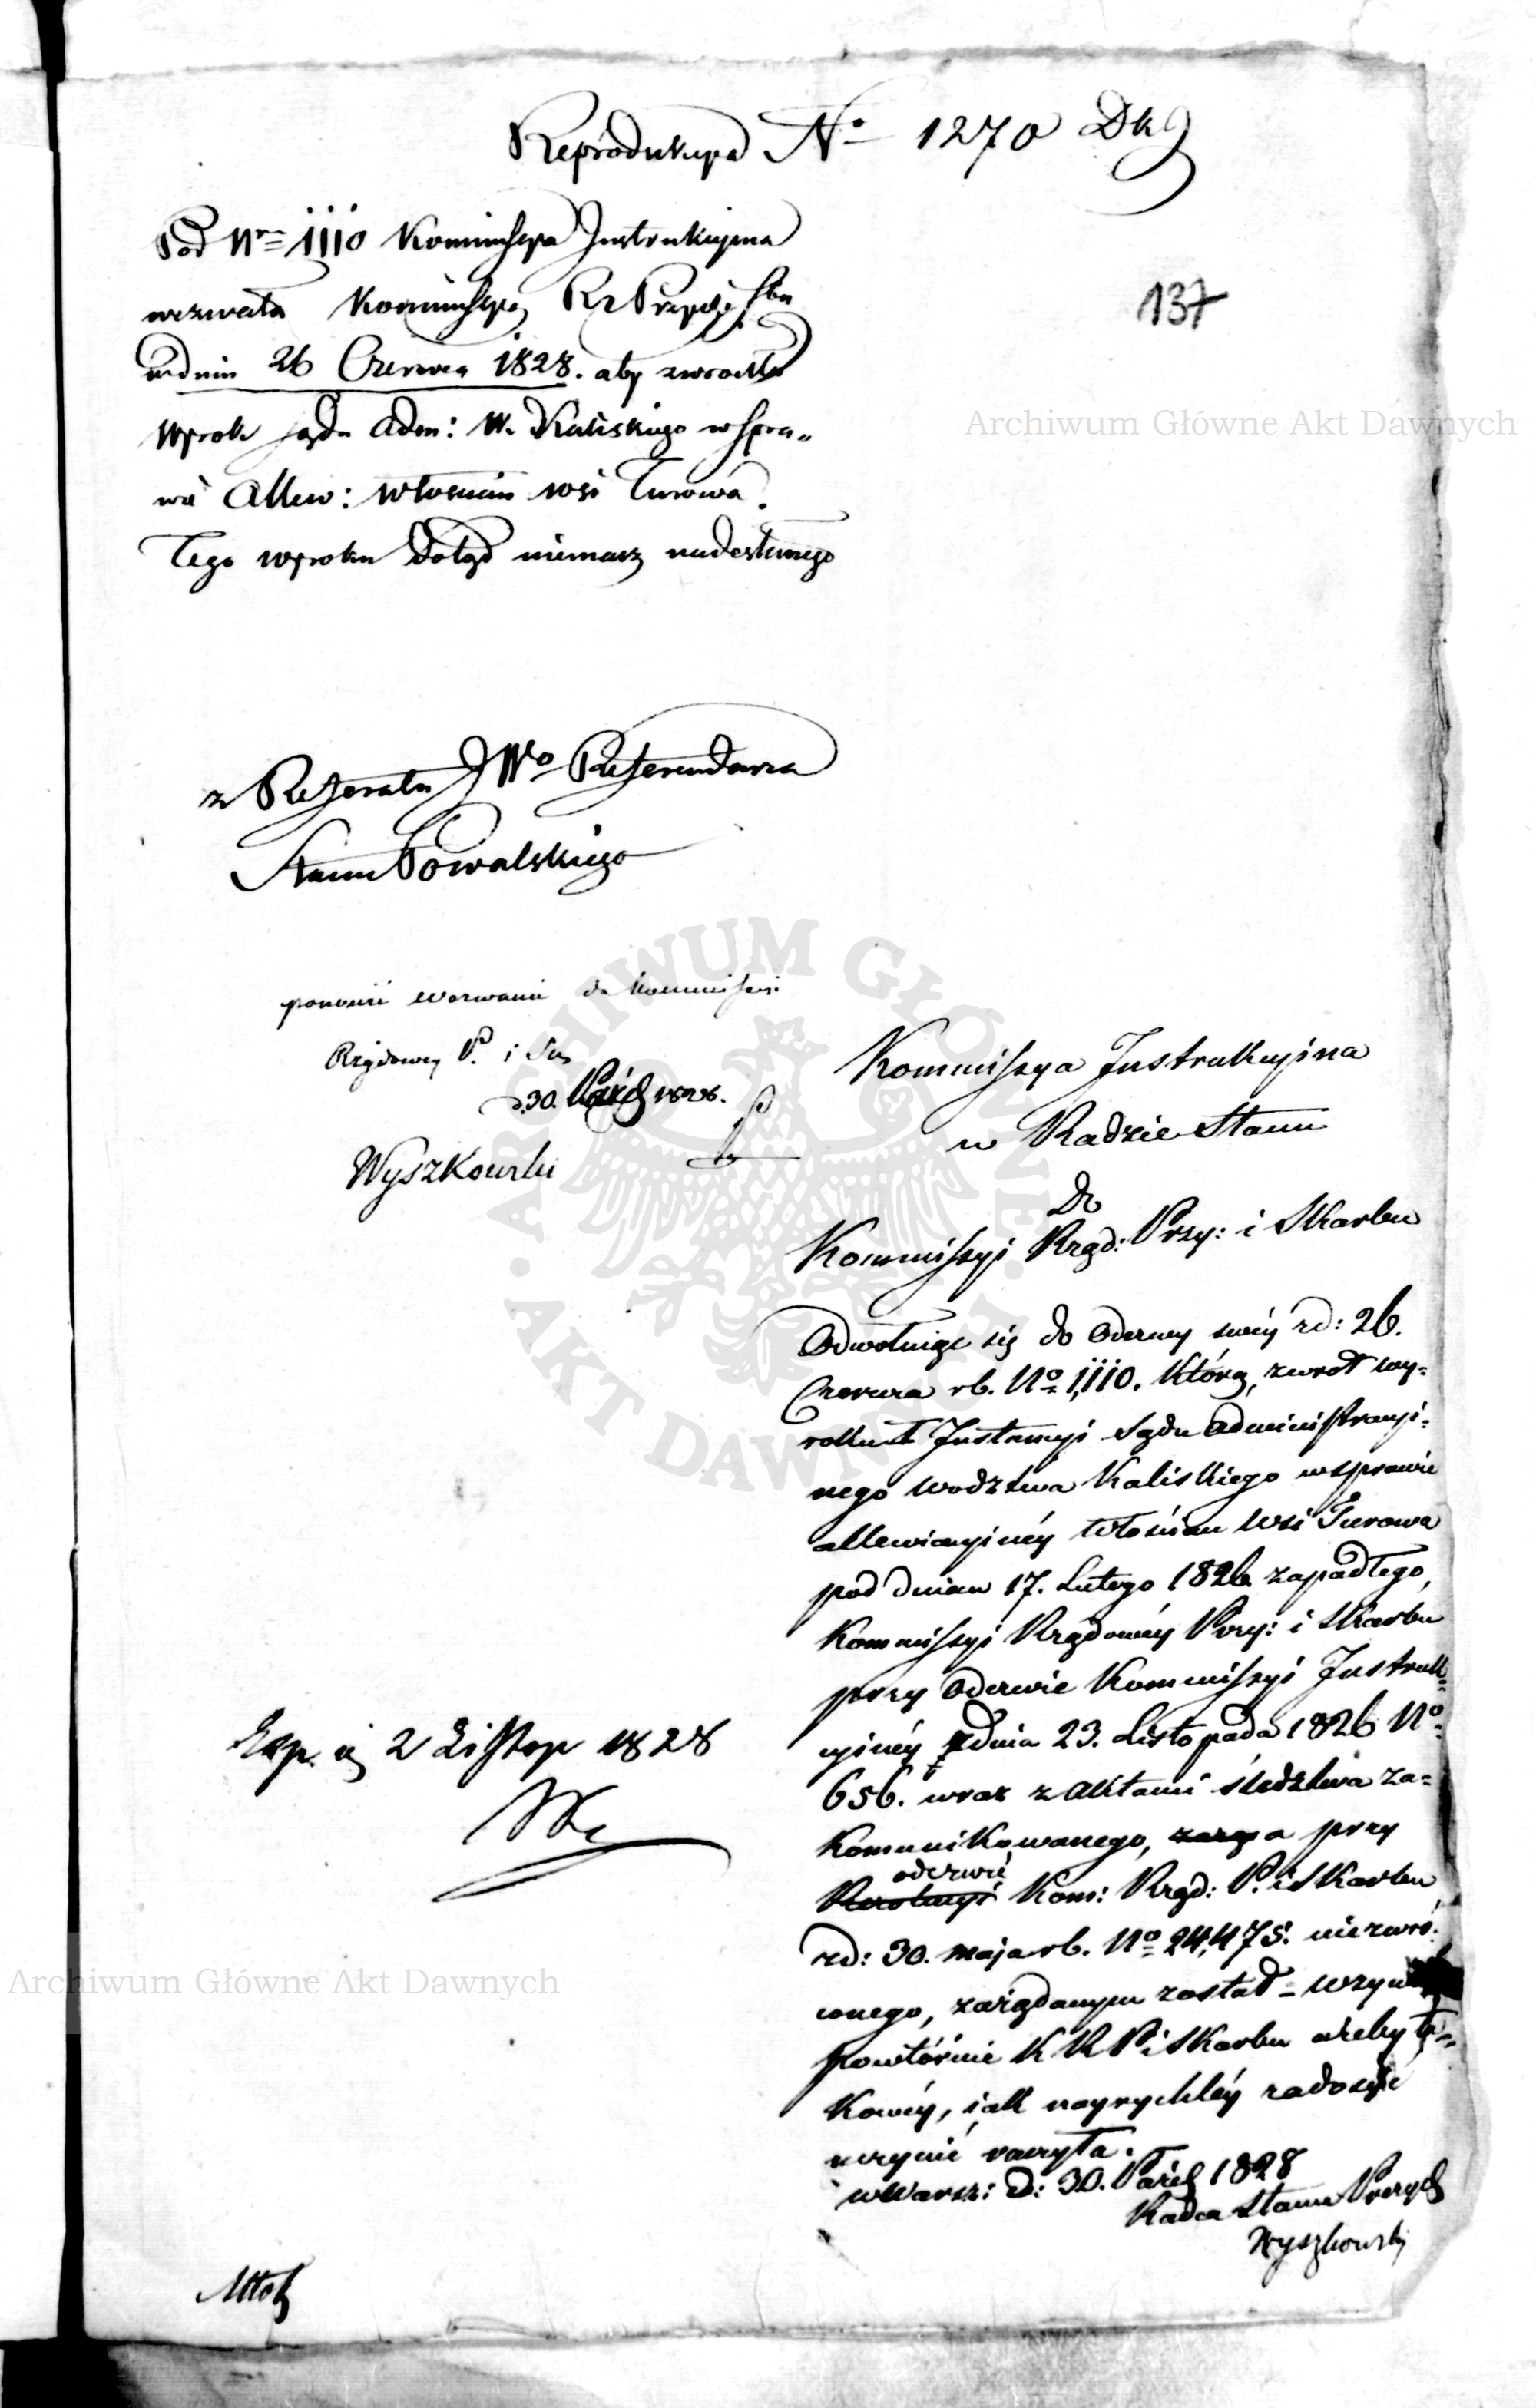 Reprodukcya No 1270 Dk
137
Pod Nr 1110 Kommissya Instrukcyina
wezwała Kommissyą Rz Przych: i Sku
w dniu 26 Czerwca 1828. aby zwrociła
Wyrok sądu Adm: W. Kaliskiego w spra„
wie Allew: Włościan wsi Turowa.
Tego wyroku dotąd niemasz nadesłanego
z Referatu JWo Referendarza
Stanu Kowalskiego
ponowić wezwanie do Kommissii
Rządowey P. i Sk
d. 30. Paźd 1828.
Wyszkowski
Kommissya Instrukcyina
w Radzie Stanu
Do
Kommissyi Rząd: Przy: i Skarbu
Odwołuiąc się do Odezwy swéy z d: 26.
Czerwca rb. No 1,110. Którą, zwrot wy-
roku Instancyi Sądu Administracyi-
nego Wodztwa Kaliskiego w sprawie
allewiacyinéy Włościan Wsi Turowa
pod dniem 17. Lutego 1826 zapadłego,
Kommissyi Rządowéy Przy: i Skarbu
przy Odezwie Kommissyi Instruk-
cyinéy z dnia 23. Listopada 1826 No
656. wraz z Aktami śledztwa za-
komunikowanego, a przy
odezwie
Kom: Rząd: P. i Skarbu
z d: 30. Maja rb. No 24,475. niezwró-
conego, zażądanym został – wzywa
powtórnie K R P i Skarbu ażeby ta-
kowéy, iak nayrychléy zadosyć
uczynić raczyła.
w Warsz: d: 30. Paźd 1828
Radca Stanu Prezyd
Wyszkowski
Exp. 2 Listop 1828
Archiwum Główne Akt Dawnych
Archiwum Główne Akt Dawnych
ARCHIWUM GŁÓWNE AKT DAWNYCH